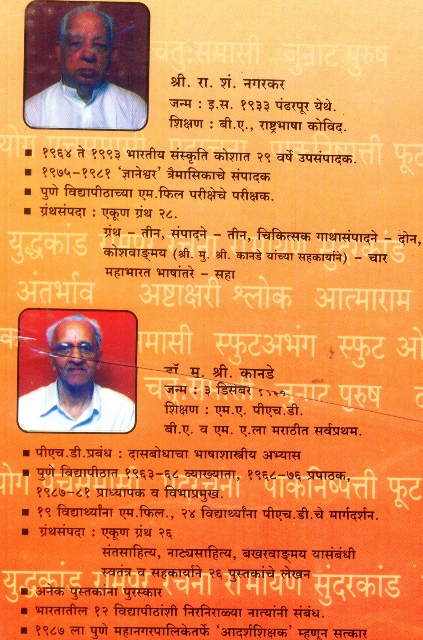 श्री. रा. शं. नगरकर
जन्म : इ.स. १९३३ पंढरपूर येथे.
शिक्षण : बी.ए., राष्ट्रभाषा कोविद.
१९६४ ते १९९३ भारतीय संस्कृति कोशात २९ वर्षे उपसंपादक.
१९७५-१९८१ 'ज्ञानेश्वर' त्रैमासिकाचे संपादक
पुणे विद्यापीठाच्या एम.फिल परीक्षेचे परीक्षक.
ग्रंथसंपदा : एकूण ग्रंथ २८.
ग्रंथ - तीन, संपादने - तीन, चिकित्सक गाथासंपादने - दोन,
कोशवाङ्मय (श्री. मु. श्री. कानडे यांच्या सहकार्याने) - चार
महाभारत भाषांतरे - सहा
अंतर्भाव अष्टाक्षरी श्लोक आत्माराम
स्फुटअभंग स्फुट
डॉ. मु. श्री. कानडे
जन्म : ३ डिसेंबर
शिक्षण : एम.ए. पीएच.डी.
बी.ए. व एम. ए.ला मराठीत सर्वप्रथम.
पीएच.डी.प्रबंध : दासबोधाचा भाषाशास्त्रीय अभ्यास
पुणे विद्यापीठात १९६३-६८ व्याख्याता, १९६८-७६ प्रपाठक,
१९८७-८१ प्राध्यापक व विभाप्रमुख.
१९ विद्यार्थ्यांना एम.फिल., २४ विद्यार्थ्यांना पीएच.डी.चे मार्गदर्शन.
ग्रंथसंपदा : एकूण ग्रंथ २६
संतसाहित्य, नाट्यसाहित्य, बखरवाङ्मय यासंबंधी
स्वतंत्र व सहकार्याने २६ पुस्तकांचे लेखन
युद्धकांड रचना रामायण सुंदरकांड
अनेक पुस्तकांना पुरस्कार
भारतातील १२ विद्यापीठांशी निरनिराळ्या नात्यांनी संबंध.
१९८७ ला पुणे महानगरपालिकेतर्फे 'आदर्शशिक्षक' म्हणून सत्कार